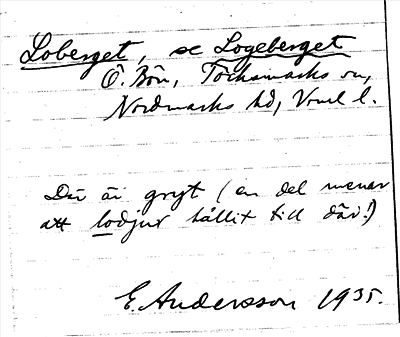 Loberget, se Logeberget
Ö. Bön, Töcksmarks sn,
Nordmarks hd, Vrml l.
Där är gryt (en del menar
att lodjur hållit till där!)
E. Andersson 1935.